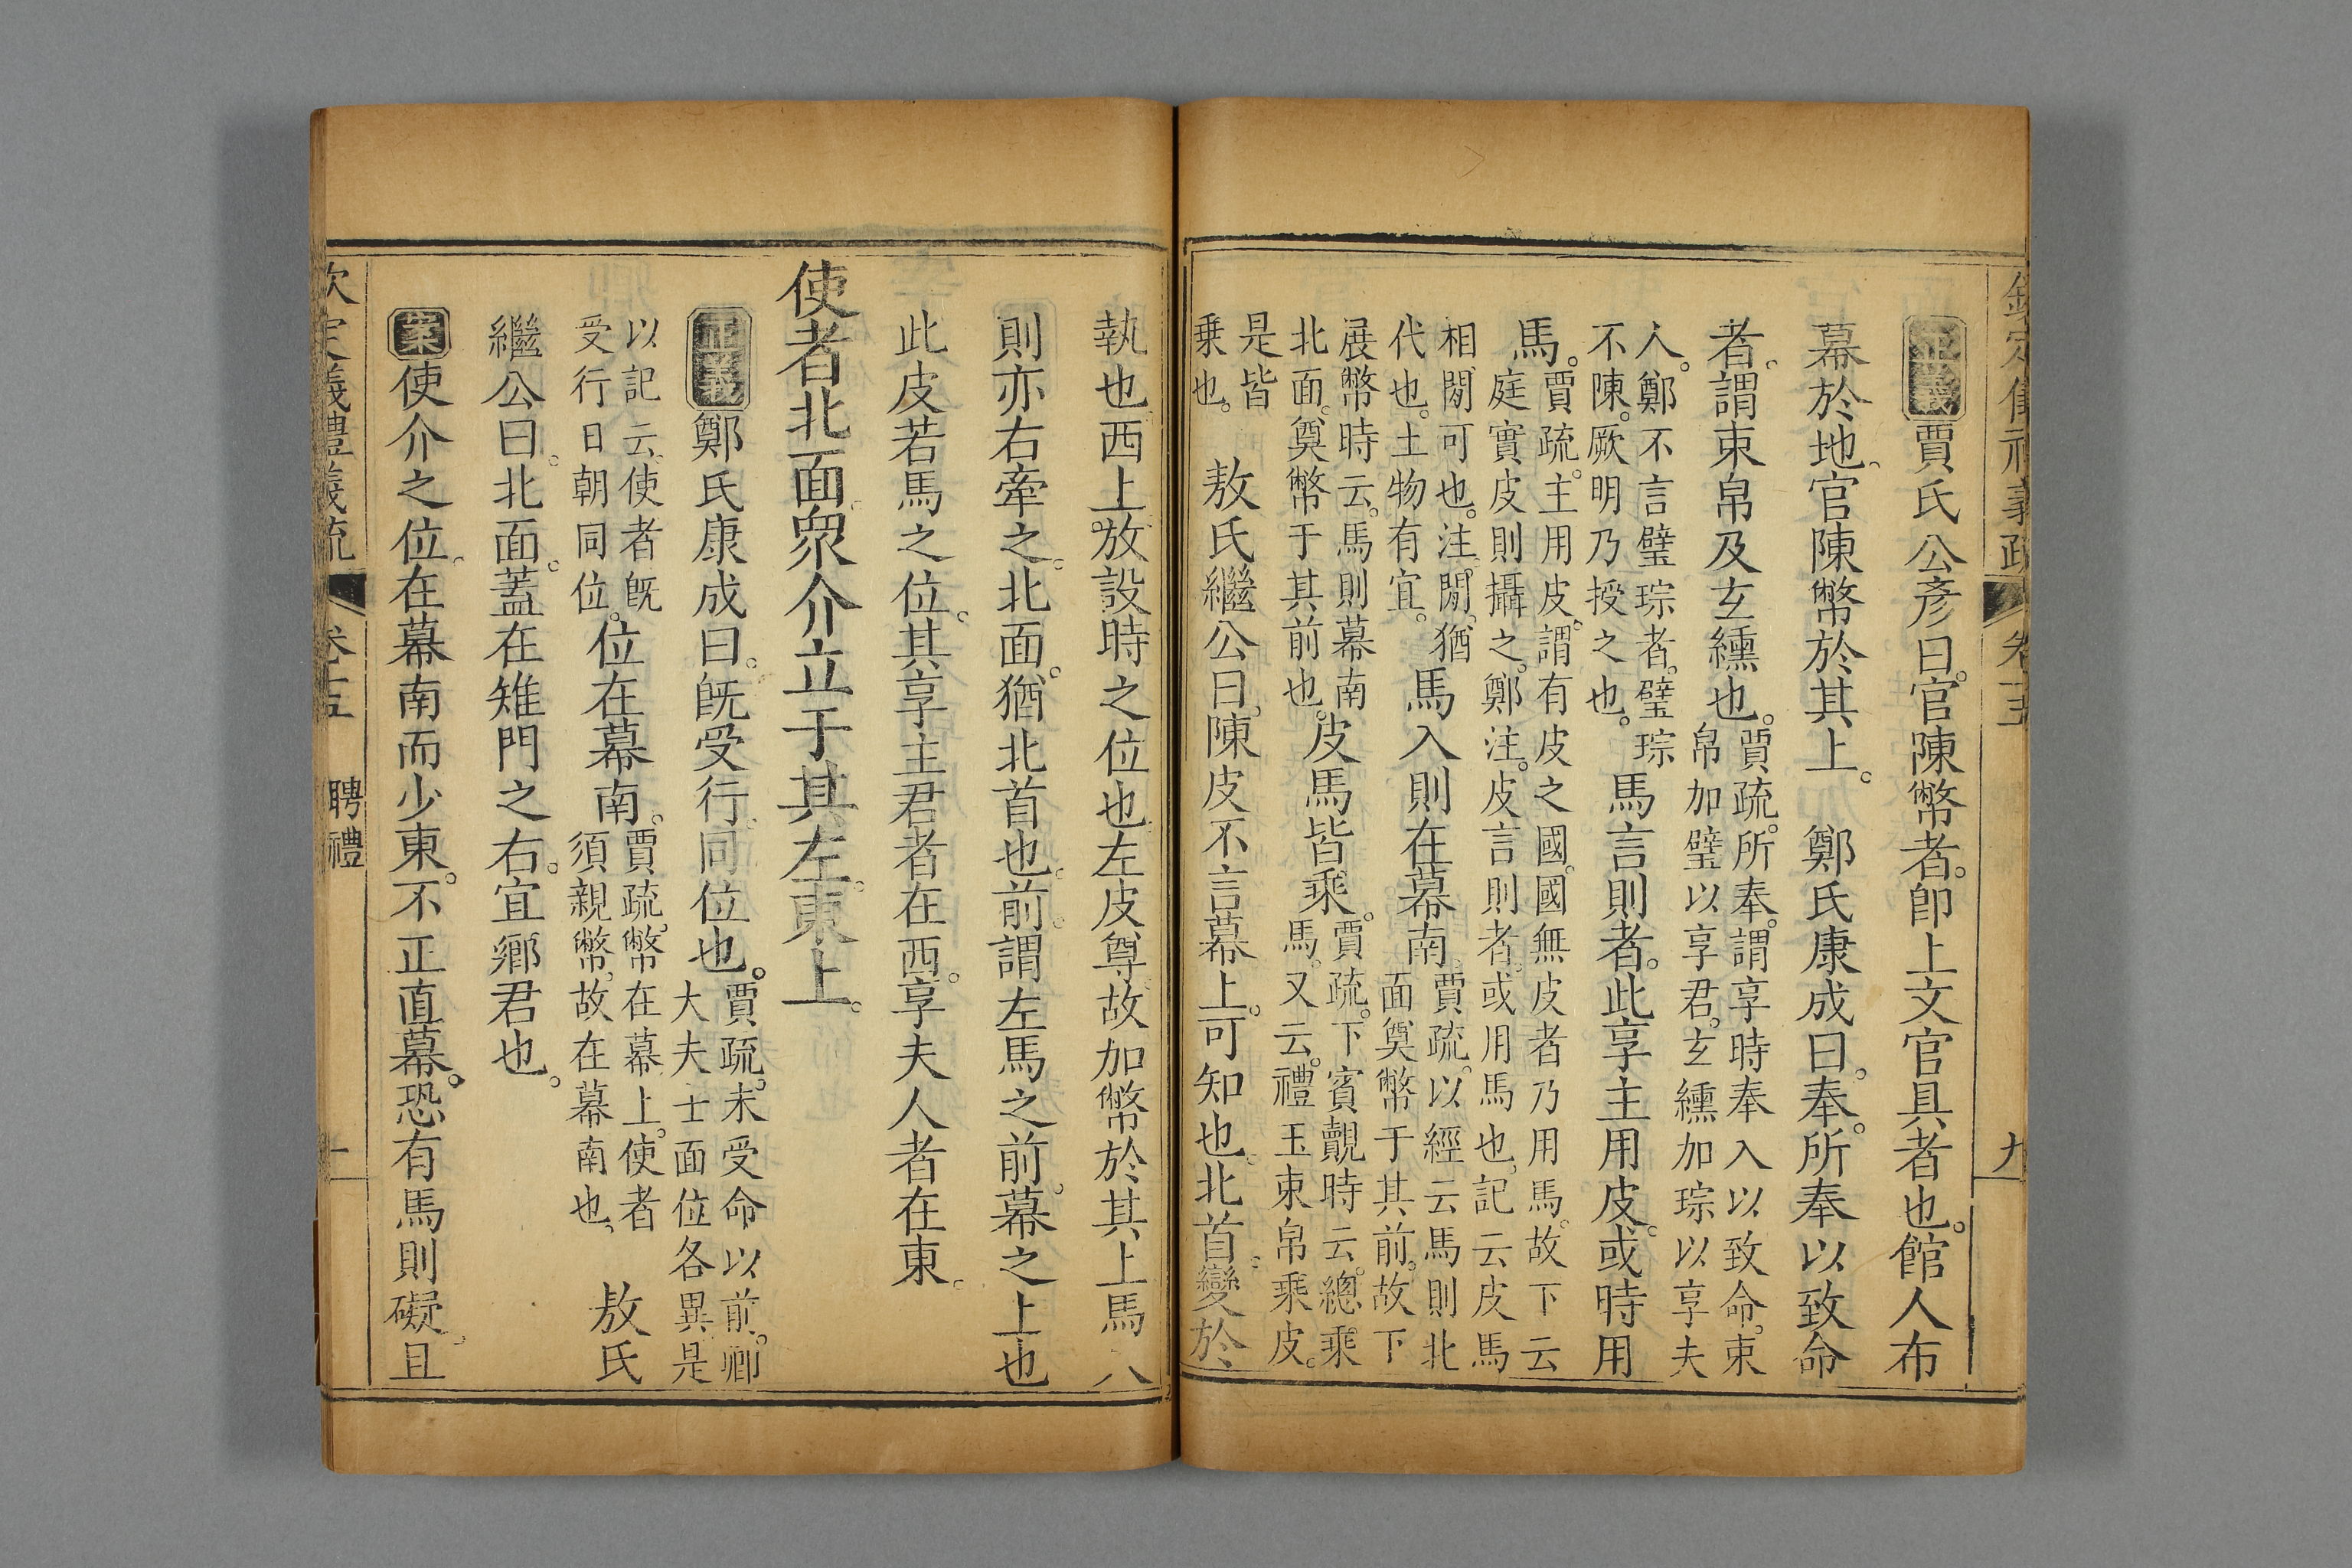 正義賈氏公彥曰。官陳幣者。卽上文官具者也。館人布
幕於地。官陳幣於其上。　鄭氏康成曰。奉。所奉以致命
者。謂束帛及玄纁也。
賈疏。所奉。謂享時奉入以致命。束
帛加璧以享君。玄纁加琮以享夫
人。鄭不言璧琮者。璧琮
不陳。厥明乃授之也。
馬言則者。此享主用皮。或時用
馬。
賈疏。主用皮。謂有皮之國。國無皮者乃用馬。故下云
庭實皮則攝之。鄭注。皮言則者。或用馬也。記云皮馬
相閒可也。注。閒。猶
代也。土物有宜。
馬入則在幕南。
賈疏。以經云馬則北
面奠幣于其前。故下
展幣時云。馬則幕南
北面。奠幣于其前也。
皮馬皆乘。
賈疏。下賓覿時云。總乘
馬。又云。禮玉束帛乘皮。
是皆
乘也。
敖氏繼公曰。陳皮不言幕上。可知也。北首。變於
執也。西上。放設時之位也。左皮尊。故加幣於其上。馬入
則亦右牽之。北面。猶北首也。前。謂左馬之前。幕之上也。
此皮若馬之位。其享主君者在西。享夫人者在東。
使者北面。眾介立于其左。東上。
正義鄭氏康成曰。旣受行。同位也。
賈疏。未受命以前。卿
大夫士面位各異。是
以記云。使者旣
受行日朝同位。
位在幕南。
賈疏。幣在幕上。使者
須親幣。故在幕南也。
敖氏
繼公曰。北面。蓋在雉門之右。宜鄉君也。
案使介之位。在幕南而少東。不正直幕。恐有馬則礙。且
聘禮